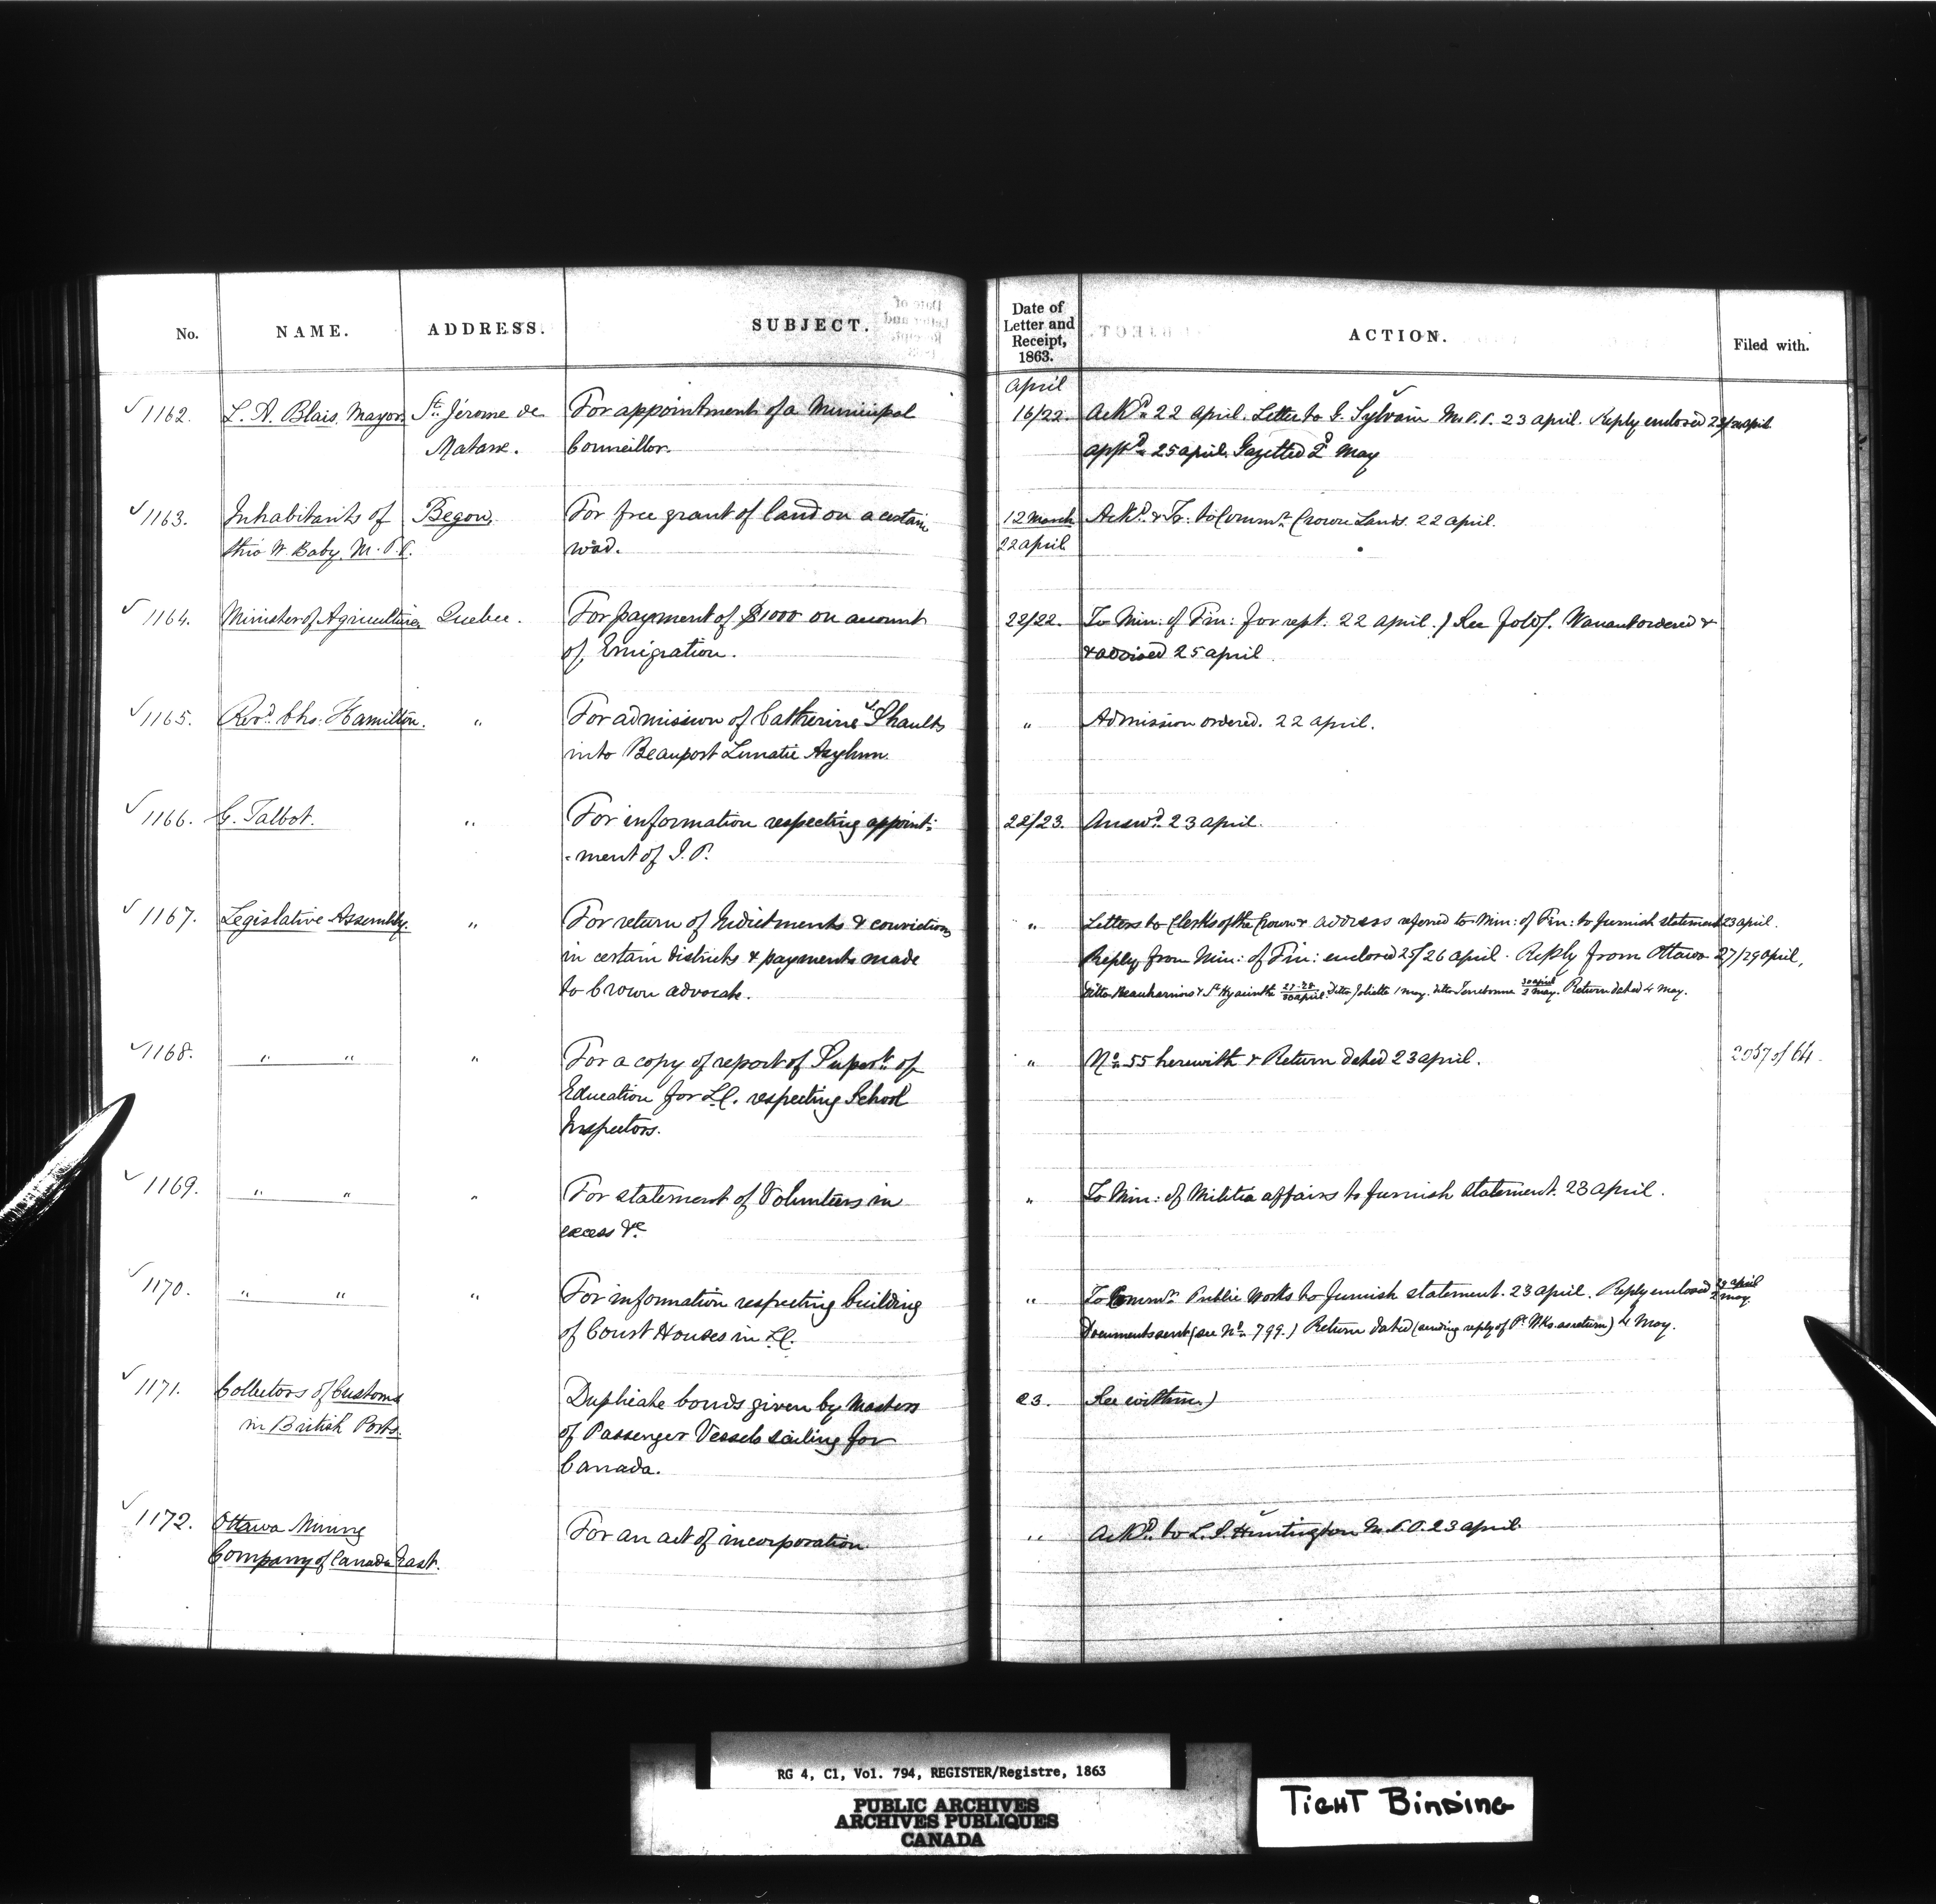 No. NAME. ADDRESS. SUBJECT. Date of Letter and Receipt, 1863. ACTION. Filed with.
April
1162. L. A. Blais, Mayor St. Jérome de For appointment of a Municipal 16/22. Ackd. 22 April. Letter to G. Sylvain M.P.P. 23 April. Reply enclosed
Matane. Councillor. appd. 25 April. Gazetted 2d May
1163. Inhabitants of Begon, For free grant of land on a certain 12 March Ackd. & Tr: to Commr. Crown Lands. 22 April.
thro' W. Baby, M.P.P. road. 22 April
1164. Minister of Agriculture Quebec. For payment of $1000 on account 22/22. To Min: of Fin: for rept. 22 April.) See fold/. Warrant ordered &
of Emigration. & advised 25 April.
1165. Revd. Chs: Hamilton. " For admission of Catherine Shaults " Admission ordered. 22 April.
into Beauport Lunatic Asylum.
1166. G. Talbot. " For information respecting appoint- 22/23. Answd. 23 April.
-ment of J.P.
1167. Legislative Assembly. " For return of Indictments & convictions " Letters to Clerks of the Crown & address referred to Min: of Fin: to furnish statement 23 April.
in certain districts & payments made Reply from Min: of Fin: enclosed 25/26 April. Reply from Ottawa 27/29 April,
to Crown advocate. ditto Beauharnois & St Hyacinthe 27-28/30 April. ditto Joliette 1 May. ditto Terrebonne 30 April/2 May. Return dated 4 May.
1168. " " " For a copy of report of Supert. of " No. 55 herewith & Return dated 23 April. 2057 of 64.
Education for L.C. respecting School
Inspectors.
1169. " " " For statement of Volunteers in " To Min: of Militia affairs to furnish statement. 23 April.
excess &c
1170. " " " For information respecting building " To Commr. Public Works to furnish statement. 23 April. Reply enclosed 29 April/2 May
of Court Houses in L.C. Documents sent (see No. 799.) Return dated (sending reply of P. Wks. as return) 4 May.
1171. Collectors of Customs Duplicate bonds given by Masters 23. See within)
in British Ports. of Passenger Vessels sailing for
Canada.
1172. Ottawa Mining For an act of incorporation " Ackd. to L. S. Huntington M.P.P. 23 April
Company of Canada East.
RG 4, C1, Vol. 794, REGISTER/Registre, 1863
PUBLIC ARCHIVES
ARCHIVES PUBLIQUES
CANADA
TIGHT BINDING